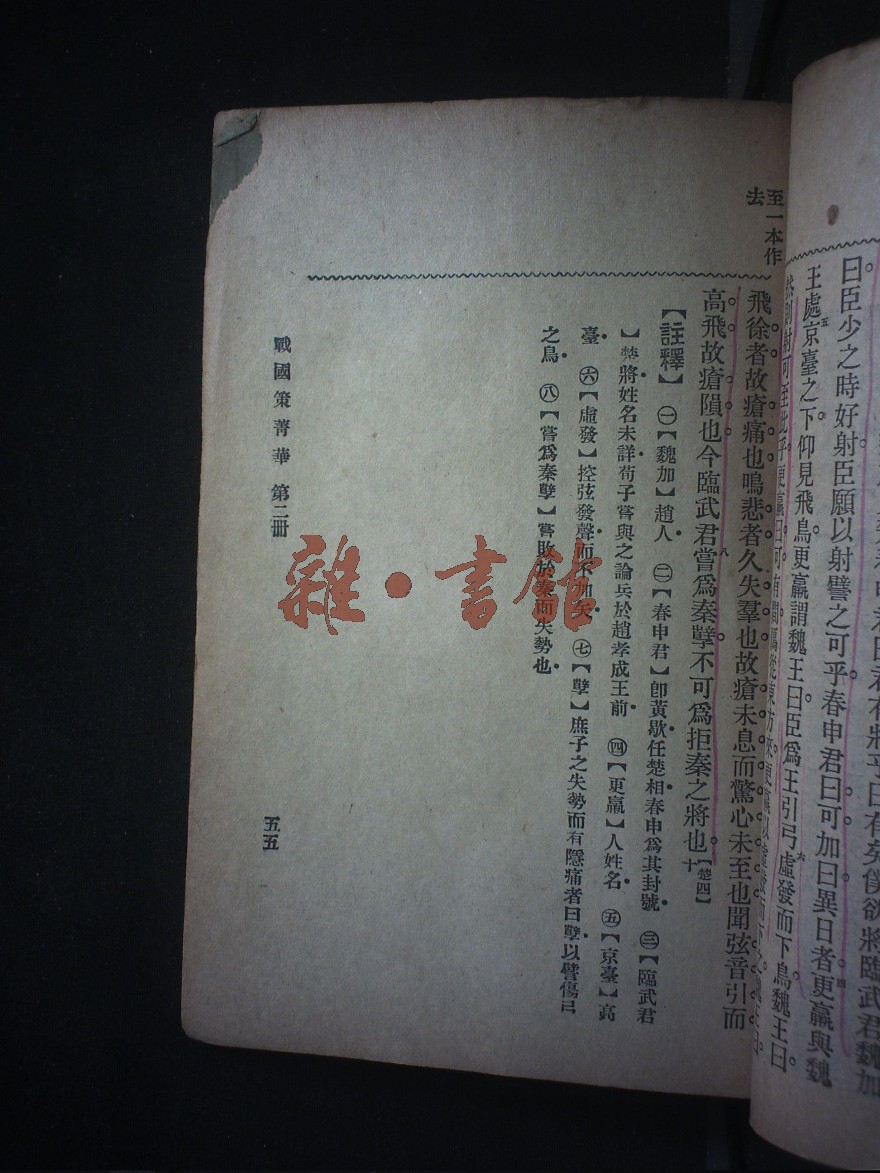 曰臣少之時好射臣願以射譬之可乎春申君曰可加曰異日者更羸與魏
王處京臺之下仰見飛鳥更羸謂魏王曰臣爲王引弓虛發而下鳥魏王曰
然則射可至此乎更羸曰可有間
至一本作
去
飛徐者故瘡痛也鳴悲者久失羣也故瘡未息而驚心未至也聞弦音引而
高飛故瘡隕也今臨武君嘗爲秦孽不可爲拒秦之將也【楚四】
【註釋】㊀【魏加】趙人 ㊁【春申君】卽黃歇任楚相春申爲其封號 ㊂【臨武君
】楚將姓名未詳荀子嘗與之論兵於趙孝成王前 ㊃【更羸】人姓名 ㊄【京臺】高
臺 ㊅【虛發】控弦發聲而不加矢 ㊆【孽】庶子之失勢而有隱痛者曰孽以譬傷弓
之鳥 ㊇【嘗爲秦孽】嘗敗於秦而失勢也
戰國策菁華 第二册
五五
雜·書館